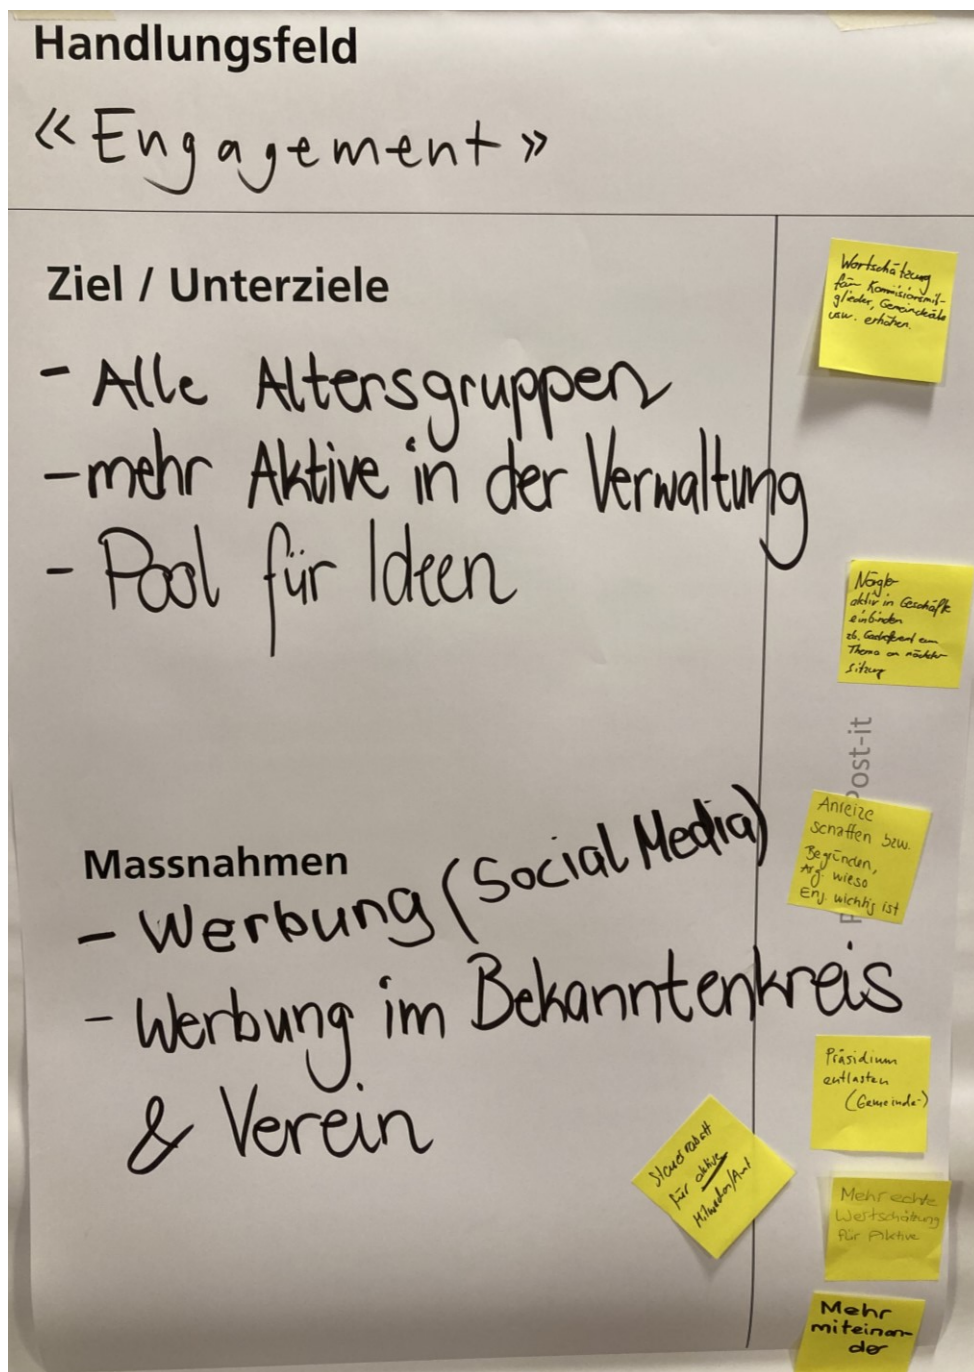 Handlungsfeld
« Engagement »
Ziel / Unterziele
- Alle Altersgruppen
- mehr Aktive in der Verwaltung
- Pool für Ideen
Massnahmen
- Werbung (Social Media)
- Werbung im Bekanntenkreis
& Verein
Wertschätzung
für Kommissionsmit-
glieder, Gemeinderäte
usw. erhöhen.
Nörgler
aktiv in Geschäfte
einbinden
zb. zum
Thema an nächster
Sitzung
Post-it
Anreize
schaffen bzw.
Begründen,
Arg. wieso
Eng. wichtig ist
Präsidium
entlasten
(Gemeinde-)
Steuerrabatt
für aktive
Mitmachen/Amt
Mehr echte
Wertschätzung
für Aktive
Mehr
miteinan-
der